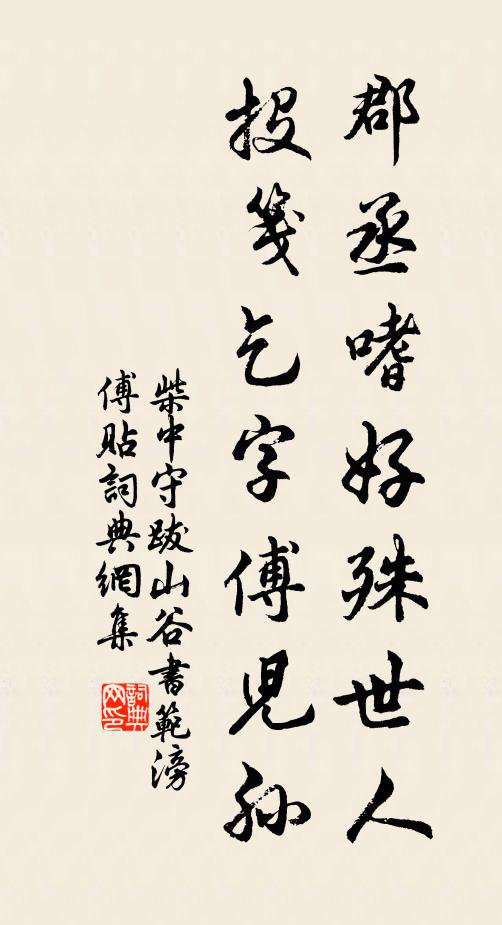 郡丞嗜好殊世人
投箋乞字傅兒孫
柴中守跋山谷書範滂
傅貼詞典網集
詞典網印